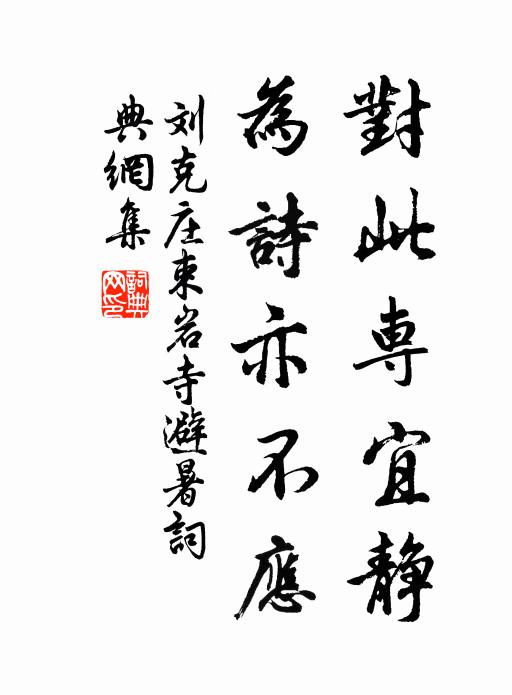 對此專宜靜
為詩亦不應
刘克庄東岩寺避暑詞
典網集
詞典
网印